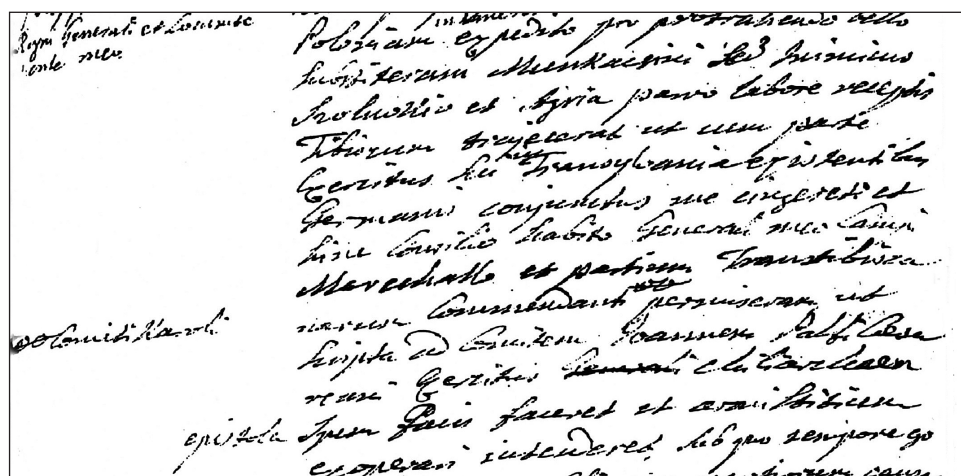 Regni Generali et Locumte
nente meo
Poloniam expedito pro protrahendo bello
substiteram Munkacsini sed Inimicus
Szolnokio et Agria parvo labore receptis
Tibiscum trajecerat ut cum parte
Exercitus sui in Transylvania existentibus
Germanis conjunctus me cingeret et
hinc Consilio habito Generali meo Campi
Marechallo et partium Transtibisca
narum Commendanti permiseram ut
∞ Comiti Karoli
scripta ad Comitem Joannem Palfi Caesa
reani Exercitus
epistola spem pacis faceret et armistitium
exoperari intenderet, sub quo tempore ego